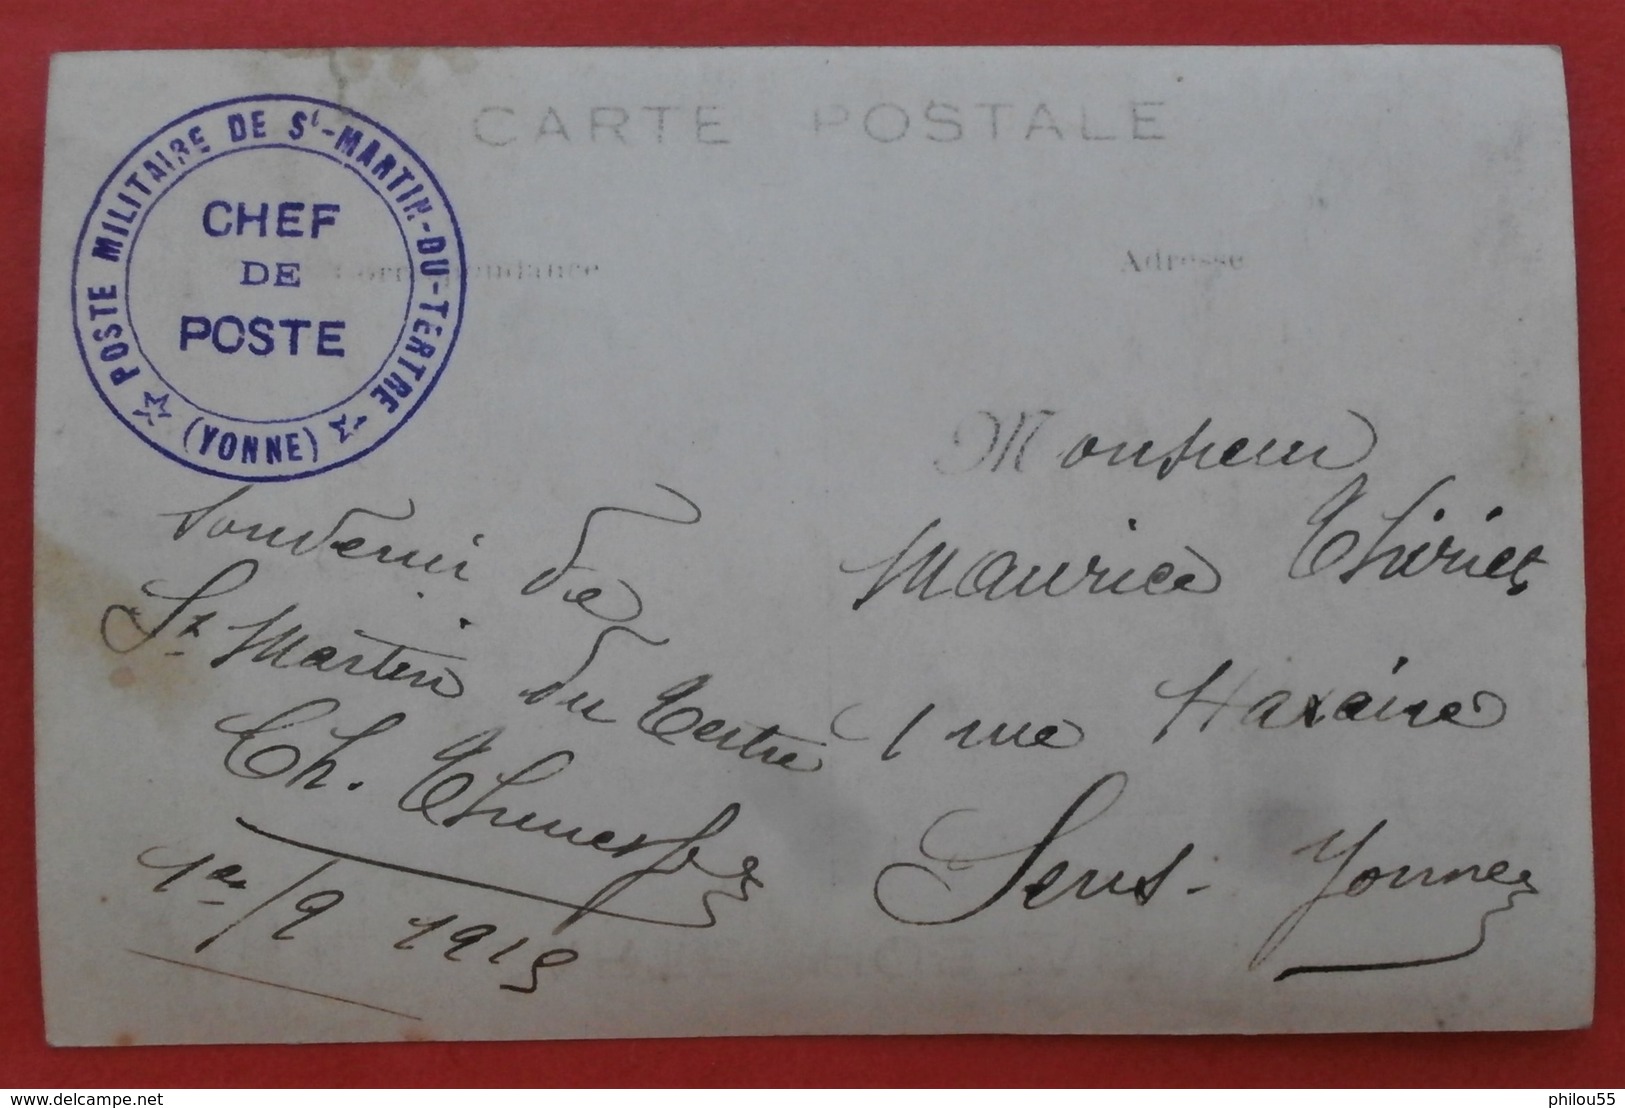 CARTE POSTALE
POSTE MILITAIRE DE St-MARTIN-DU-TERTRE
(YONNE)
CHEF
DE
POSTE
Correspondance
Adresse
Souvenir de
St Martin du Tertre
Ch.
1er/9 1915
Monsieur
Maurice Thiriet
1 rue
Sens - Yonne
delcampe.net
philou55